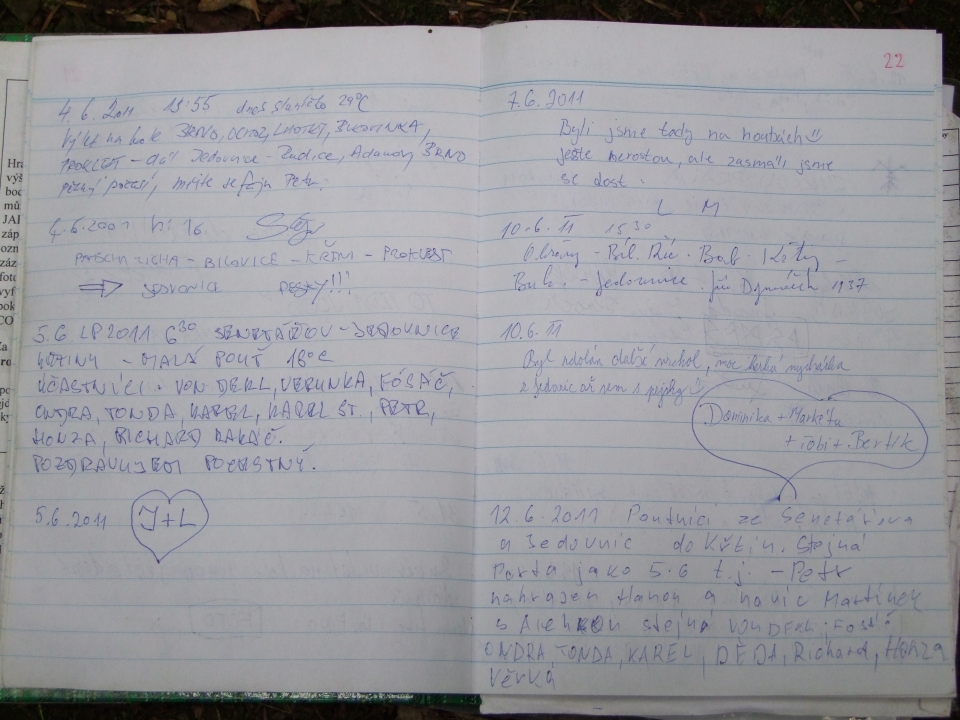 4.6.2011 13:55 dnes sluníčko 29°C
Výlet na kole BRNO, OCHOZ, LHOTKY, BUKOVINKA,
PROKLEST - dál Jedovnice - Rudice, Adamov, BRNO
pěkný počasí, mějte se fajn Petr.
4.6.2001
LÍCHA - BÍLOVICE - KŘTINY - PROKLEST
⇒ JEDOVNICE PĚŠKY!!!
5.6. LP 2011. 6³⁰ SENETÁŘOV - JEDOVNICE
KŘTINY - MALÁ POUŤ 18°C
ÚČASTNÍCI - VONDERL, VERUNKA, FÓSÁČ,
ONDRA, TONDA, KAREL, KAREL ST., PETR,
HONZA, RICHARD
POZDRAVUJEM POCESTNÝ.
5.6.2011 J+L
22
7.6.2011
Byli jsme tady na houbách
ještě nerostou, ale zasmáli jsme
se dost.
L M
10.6.11 15³⁰
Obřany - Bíl. Bab. Křtiny -
Buk. - Jedovnice. 1937
10.6.11
Byl zdolán další vrchol, moc hezká
z Jedovnic
Dominika + Markéta
+ Tobi + Bertík
12.6.2011 Poutníci ze Senetářova
a Jedovnic do Křtin. Stejná
Parta jako 5.6 t.j. - Petr
nahrazen Hanou a navíc Martínek
s stejná VONDERL, FOSÁČ
ONDRA, TONDA, KAREL, DĚDA, Richard, HONZA
Věrka